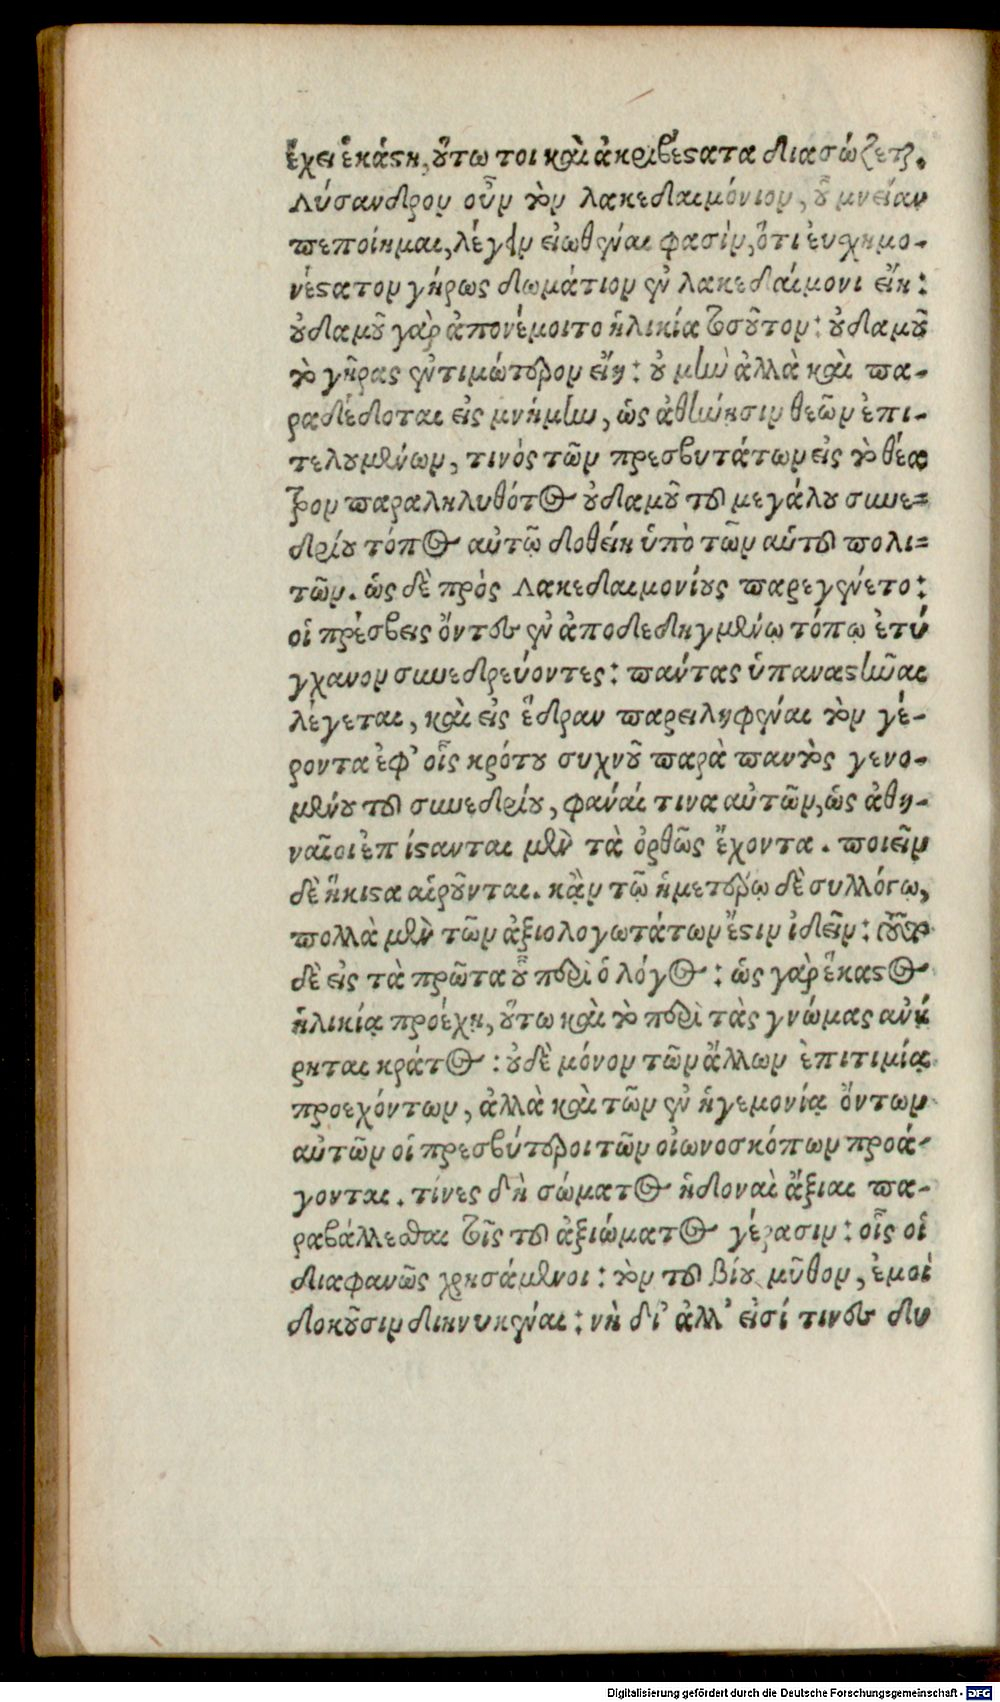 ἔχει ἑκάστη, οὕτω τοι καὶ ἀκριβέστατα διασώζεται.
Λύσανδρον οὖν τὸν λακεδαιμόνιον, οὗ μνείαν
πεποίημαι, λέγειν εἰωθέναι φασὶν, ὅτι εὐσχημο-
νέστατον γήρως δωμάτιον ἐν λακεδαίμονι εἴη:
οὐδαμοῦ γὰρ ἀπονέμοιτο ἡλικίᾳ τοσοῦτον: οὐδαμοῦ
τὸ γῆρας ἐντιμώτερον εἴη: οὐ μὴν ἀλλὰ καὶ πα-
ραδέδοται εἰς μνήμην, ὡς ἀθήνῃσιν θεῶν ἐπι-
τελουμένων, τινὸς τῶν πρεσβυτάτων εἰς τὸ θέα
τρον παραληλυθότος οὐδαμοῦ τοῦ μεγάλου συνε=
δρίου τόπος αὐτῷ δοθείη ὑπὸ τῶν αὑτοῦ πολι=
τῶν. ὡς δὲ πρὸς Λακεδαιμονίους παρεγένετο:
οἱ πρέσβεις ὄντες ἐν ἀποδεδηγμένῳ τόπῳ ἐτύ
γχανον συνεδρεύοντες: πάντας ὑπαναστῆναι
λέγεται, καὶ εἰς ἕδραν παρειληφέναι τὸν γέ-
ροντα ἐφ’ οἷς κρότου συχνοῦ παρὰ παντὸς γενο-
μένου τοῦ συνεδρίου, φάναί τινα αὐτῶν, ὡς ἀθη-
ναῖοι ἐπίστανται μὲν τὰ ὀρθῶς ἔχοντα. ποιεῖν
δὲ ἥκιστα αἱροῦνται. κᾂν τῷ ἡμετέρῳ δὲ συλλόγῳ,
πολλὰ μὲν τῶν ἀξιολογωτάτων ἔστιν ἰδεῖν:
δὲ εἰς τὰ πρῶτα οὗ περὶ ὁ λόγος: ὡς γὰρ ἕκαστος
ἡλικίᾳ προέχῃ, οὕτω καὶ τὸ περὶ τὰς γνώμας ἀνή
ρηται κράτος: οὐδὲ μόνον τῶν ἄλλων ἐπιτιμίᾳ
προεχόντων, ἀλλὰ καὶ τῶν ἐν ἡγεμονίᾳ ὄντων
αὐτῶν οἱ πρεσβύτεροι τῶν οἰωνοσκόπων προά-
γονται. τίνες δὴ σώματος ἡδοναὶ ἄξιαι πα-
ραβάλλεσθαι τοῖς τοῦ ἀξιώματος γέρασιν: οἷς οἱ
διαφανῶς χρησάμενοι: τὸν τοῦ βίου μῦθον, ἐμοὶ
δοκοῦσιν διηνυκέναι: νὴ δί’ ἀλλ’ εἰσί τινες δυ
Digitalisierung gefördert durch die Deutsche Forschungsgemeinschaft - DFG